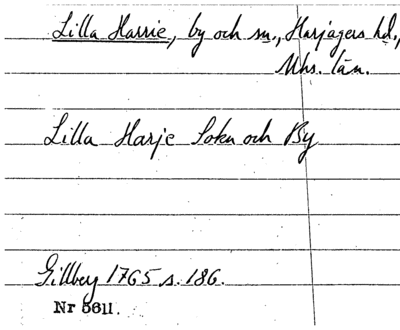 Lilla Harrie, by och sn., Harjagers hd.,
Mhs. län.
Lilla Harje Sokn och By
Gillberg 1765 s. 186.
Nr 5611.